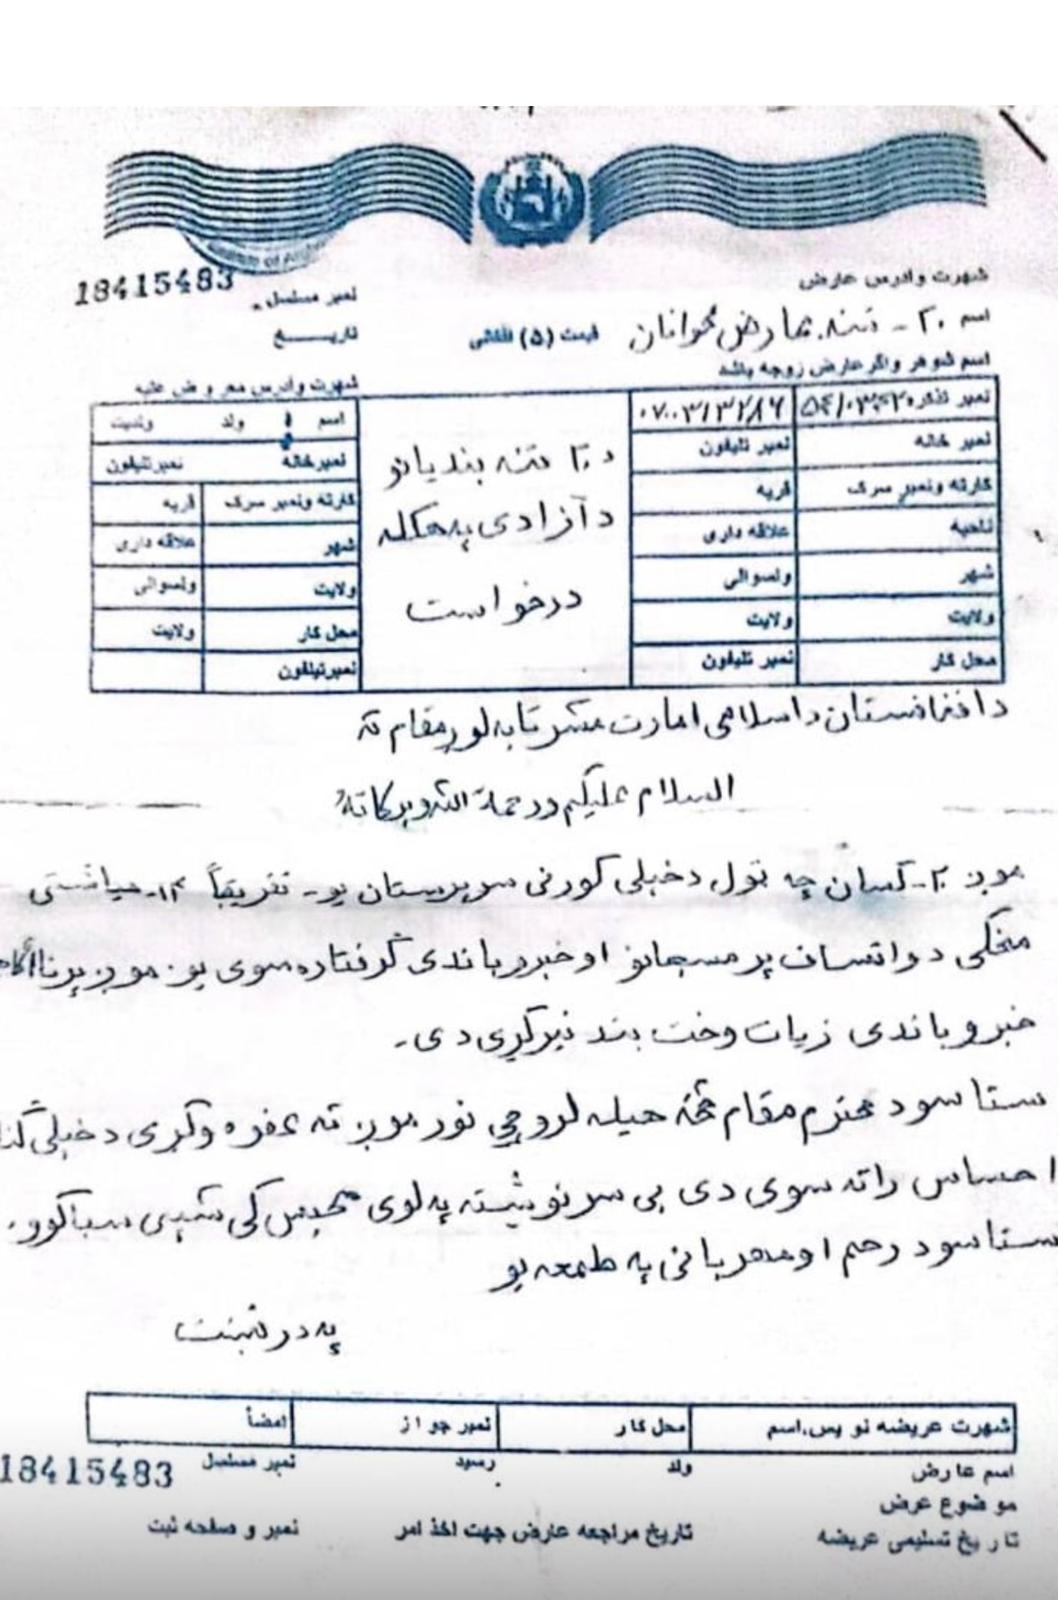 18415483
نمبر مسلسل
تاریــــخ
شهرت وادرس عارض
اسم ۲۰- تنه عارض محوانان
قیمت (۵) افغانی
اسم شوهر واگر عارض زوجه باشد
شهرت وادرس معروض علیه
نمبر تذکره
۰۷۰۰۳۱۳۲۸۶
نمبر خانه
نمبر تلیفون
کارته ونمبر سرک
قریه
ناحیه
علاقه داری
شهر
ولسوالی
ولایت
ولایت
محل کار
نمبر تلیفون
د ۲۰ تنه بندیانو
د آزادی په هکله
درخواست
اسم ولد ولدیت
نمبرخانه نمبرتلیفون
کارته ونمبر سرک قریه
شهر علاقه داری
ولایت ولسوالی
محل کار ولایت
نمبرتیلفون
د افغانستان د اسلامی امارت مشرتابه لوړ مقام ته
السلام علیکم ورحمة الله وبرکاته
موږ ۲۰- کسان چه ټول د خپلی کورنی سرپرستان یو- تقریباً ۱۴- میاشتی
مخکی د واتساپ پر مسجانو او خبرو باندی ګرفتاره سوی یو. موږ پر نااګاه
خبرو باندی زیات وخت بند تیر کړی دی.
ستاسو د محترم مقام څخه هیله لرو چي نور موږ ته عفوه وکړی د خپلی
احساس راته سوی دی بی سرنوشته په لوی محبس کی شپی سبا کوو.
ستاسو د رحم او مهربانی په طمعه یو
په درنښت
شهرت عریضه نویس،اسم
محل کار
نمبر جواز
امضأ
اسم عارض
ولد
رسید
نمبر مسلسل
18415483
موضوع عرض
تاریخ تسلیمی عریضه
تاریخ مراجعه عارض جهت اخذ امر
نمبر و صفحه ثبت